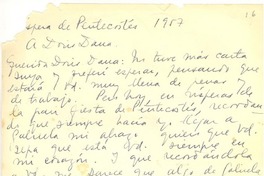 16
Víspera de Pentecostés 1957
A Doris Dana.
Querida Doris Dana: No tuve más carta
suya y preferí esperar, pensando que
estará Ud. muy llena de penas y
de trabajo. Pero hoy en vísperas de
la gran fiesta de Pentecostés, recordan-
do que siempre hacía yo llegar a
Gabriela mi abrazo, quiero que Ud.
sepa que está Ud. siempre en
mi corazón. Y que recordándola
a Ud. me parece que algo de Gabriela